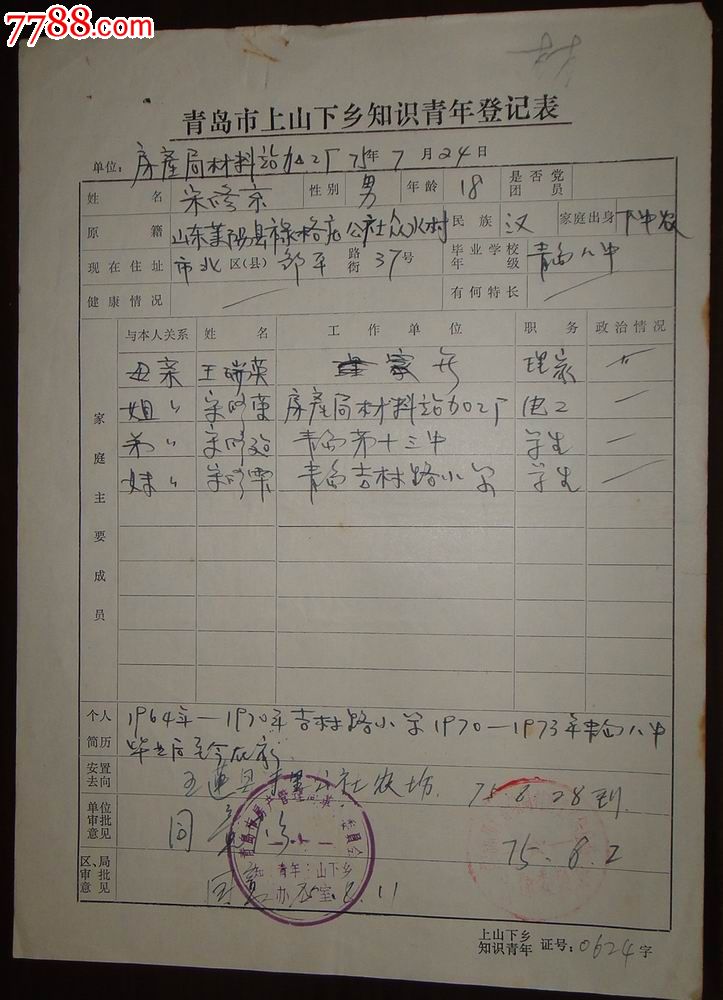 7788.com
青岛市上山下乡知识青年登记表
单位：房产局材料站加工厂 75年7月24日
姓名 宋修京 性别 男 年龄 18 是否党团员
原籍 山东莱阳县 公社 村 民族 汉 家庭出身 下中农
现在住址 市北区(县) 邹平路街 37号 毕业学校年级 青岛八中
健康情况 — 有何特长 —
家庭主要成员 与本人关系 姓名 工作单位 职务 政治情况
母亲 王瑞英 理家
姐〃 宋修 房产局材料站加工厂 电工 —
弟〃 宋修 青岛第十三中 学生 —
妹〃 宋修 青岛吉林路小学 学生 —
个人简历 1964年—1970年吉林路小学1970—1973年青岛八中
毕业后至今在家
安置去向 五莲县 公社农场. 75.6.28到
单位审批意见 同意 75.8.2
区、局审批意见 同意 75.8.11
青年上山下乡
办 室
上山下乡知识青年 证号：0624字